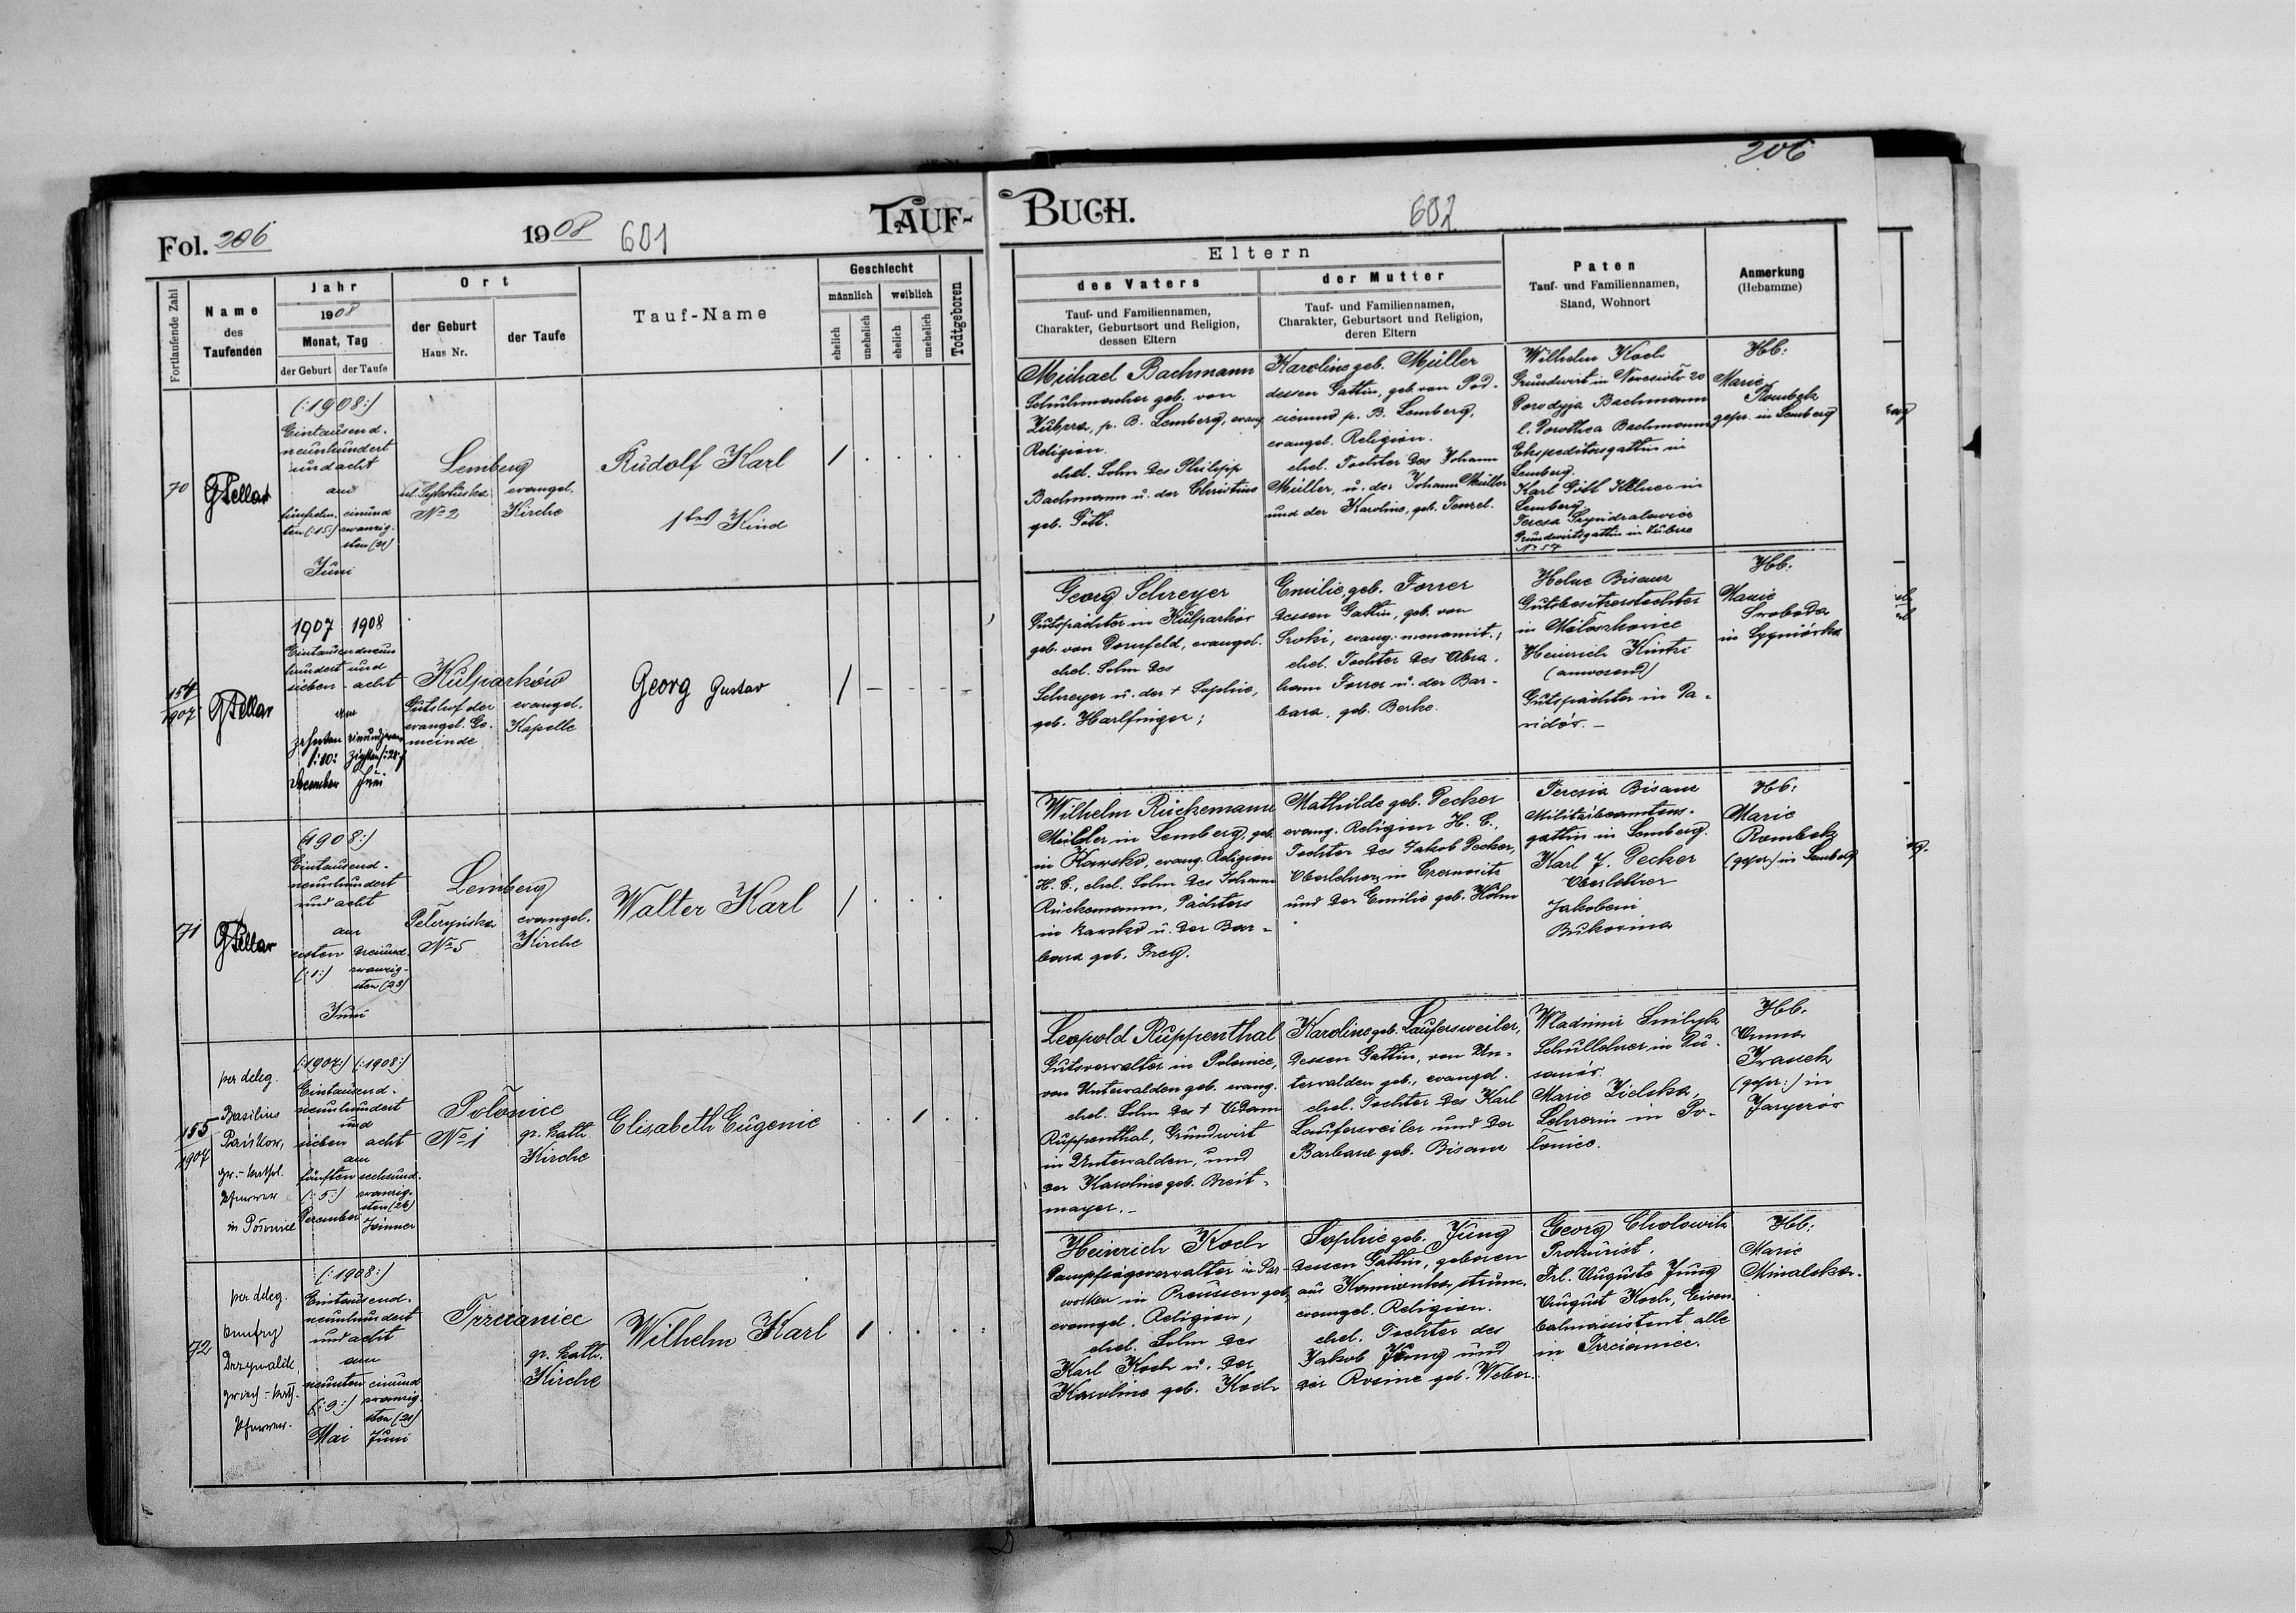 206
Fol. 206
1908
601
TAUF-
BUCH.
602
Fortlaufende Zahl
Name
des
Taufenden
Jahr
1908
Monat, Tag
der Geburt
der Taufe
Ort
der Geburt
Haus Nr.
der Taufe
Tauf-Name
Geschlecht
männlich
weiblich
ehelich
unehelich
ehelich
unehelich
Todtgeboren
Eltern
des Vaters
Tauf- und Familiennamen,
Charakter, Geburtsort und Religion,
dessen Eltern
der Mutter
Tauf- und Familiennamen,
Charakter, Geburtsort und Religion,
deren Eltern
Paten
Tauf- und Familiennamen,
Stand, Wohnort
Anmerkung
(Hebamme)
70
(:1908:)
Eintausend-
neunhundert
und acht
am
fünfzehn- einund
ten (:15:) zwanzig-
sten (21)
Juni
Lemberg
No 2
evangel.
Kirche
Rudolf Karl
1tes Kind
Michael Bachmann
Schuhmacher geb. von
Zubrza, p. B. Lemberg, evang.
Religion.
ehel. Sohn des Philipp
Bachmann u. der Christine
geb. Gött.
Karoline geb. Müller
dessen Gattin, geb. von Pod-
ciemno p. B. Lemberg,
evangel. Religion.
ehel. Tochter des Johann
Müller, u. der Johann Müller
und der Karoline, geb. Tenzel.
Wilhelm Koch
Grundwirt in 20
Bachmann
Dorothea Bachmann
Expeditorsgattin in
Lemberg.
Karl Gött Kellner in
Lemberg
Teresa
Grundwirtsgattin in
No 57
Hb:
Marie
Rombek
gepr. in Lemberg
154
1907
1907 1908
Eintausendneun
hundert und
sieben - acht
am
zehnten einundzwan
(:10: zigsten (:21:)
December Juni
Kulparków
Gutshof der
evangel. Ge-
meinde
evangel.
Kapelle
Georg Gustav
Georg Schreyer
Gutspächter in Kulparków
geb. von Dornfeld, evangel.
ehel. Sohn des
Schreyer u. der + Sophie,
geb. Harlfinger;
Emilie geb. Forrer
dessen Gattin, geb. von
Sroki, evang. menonit.,
ehel. Tochter des Abra-
ham Forrer u. der Bar-
bara, geb. Berke.
Helene Bisanz
Gutsbesitzerstochter
in Miłoszkowice
Heinrich Kintzi
(anwesend)
Gutspächter in Da-
vidów.-
Hb:
Marie
Swoboda
in Sygniówka
71
(1908:)
Eintausend-
neunhundert
und acht
am
ersten dreiund-
(:1:) zwanzig-
sten (23)
Juni
Lemberg
Pełczyńska
No 5
evangel.
Kirche
Walter Karl
Wilhelm Rückemann
Müller in Lemberg, geb.
in Kawsko, evang. Religion
H. C., ehel. Sohn des Johann
Rückemann, Pächters
in Kawsko u. der Bar-
bara geb. Frey.
Mathilde geb. Decker
evang. Religion H. C.,
Tochter des Jakob Decker,
Oberlehrer in Czernowitz
und der Emilie geb. Höhn
Teresia Bisanz
Militärbeamtens-
gattin in Lemberg.
Karl J. Decker
Oberlehrer
Jakobeni
Bukowina
Hb:
Marie
Rombek
(gepr.) in Lemberg
155
1907
per deleg.
Basilius
gr.-kathol.
Pfarrer
in Połonice
(:1907:) (:1908:)
Eintausend-
neunhundert
und
sieben acht
am
fünften sechsund-
(:5:) zwanzig-
sten (26)
December Jänner
Połonice
No 1
gr. kath.
Kirche
Elisabeth Eugenie
Leopold Ruppenthal
Gutsverwalter in Połonice,
von Unterwalden geb. evang.
ehel. Sohn des + Adam
Ruppenthal, Grundwirt
in Unterwalden, und
der Karoline geb. Breit-
mayer.-
Karoline geb. Laufersweiler,
dessen Gattin, von Un-
terwalden geb., evangel.
ehel. Tochter des Karl
Laufersweiler und der
Barbara geb. Bisanz
Wladimir
Schullehrer in Du-
sanów.
Marie Zielska,
Lehrerin in Po-
łonice.
Hb.
Anna
Iranek
(gepr:) in
72
per deleg.
Onufry
griech-kath.
Pfarrer.
(:1908:)
Eintausend-
neunhundert
und acht
am
neunten einund
(:9:) zwanzig-
sten (21)
Mai Juni
Trzcianiec
gr. kath.
Kirche
Wilhelm Karl
Heinrich Koch
Dampfsägeverwalter in Par-
wolken in Preussen geb,
evangel. Religion,
ehel. Sohn des
Karl Koch u. der
Karoline geb. Koch
Sophie geb. Jung
dessen Gattin, geboren
aus Kamionka strum.
evangel. Religion.
ehel. Tochter des
Jakob Jung und
der Rosine geb. Weber.
Georg Cholowitz
Prokurist.
Frl. Auguste Jung
August Koch, Eisen-
bahnassistent alle
in Trzcianiec.
Hb:
Marie